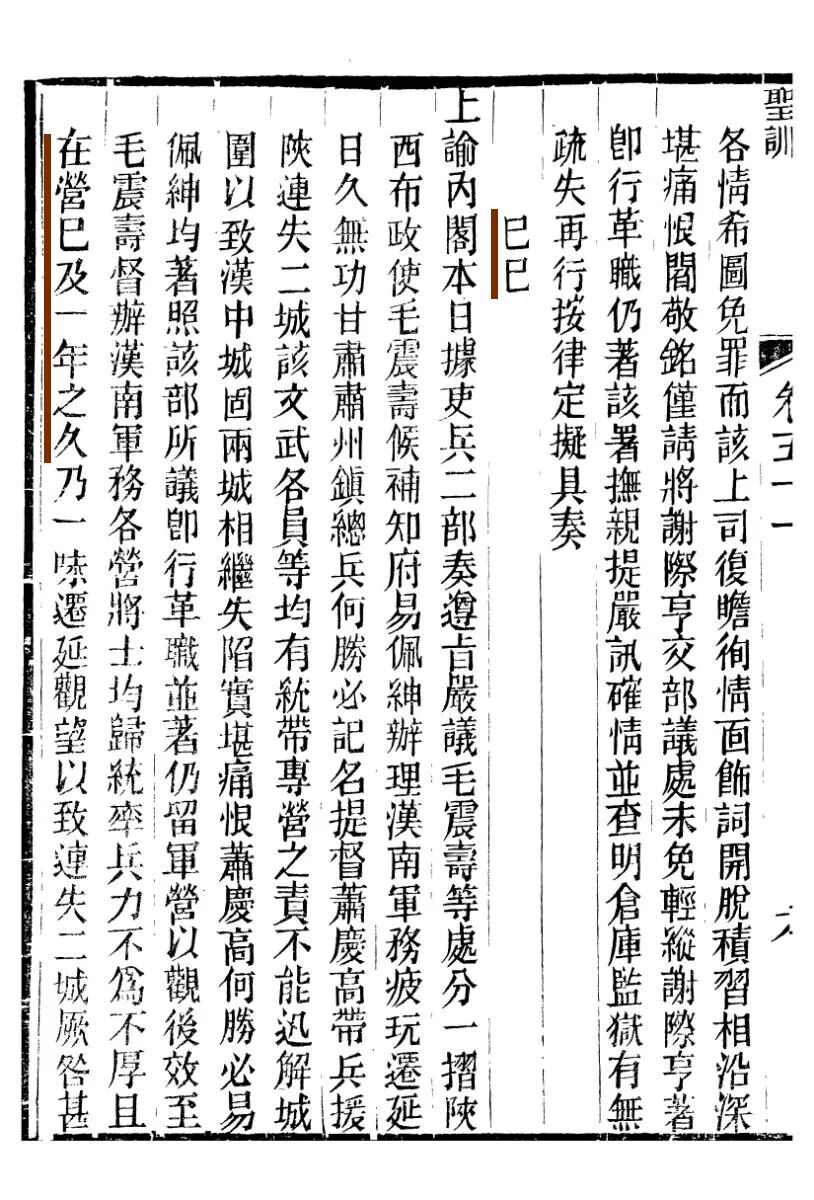 聖訓
卷五十一
六
各情希圖免罪而該上司復瞻徇情面飾詞開脫積習相沿深
堪痛恨閻敬銘僅請將謝際亨交部議處未免輕縱謝際亨著
卽行革職仍著該署撫親提嚴訊確情並查明倉庫監獄有無
疏失再行按律定擬具奏
己巳
上諭內閣本日據吏兵二部奏遵旨嚴議毛震壽等處分一摺陝
西布政使毛震壽候補知府易佩紳辦理漢南軍務疲玩遷延
日久無功甘肅肅州鎮總兵何勝必記名提督蕭慶高帶兵援
陝連失二城該文武各員等均有統帶專營之責不能迅解城
圍以致漢中城固兩城相繼失陷實堪痛恨蕭慶高何勝必易
佩紳均著照該部所議卽行革職並著仍留軍營以觀後效至
毛震壽督辦漢南軍務各營將士均歸統率兵力不爲不厚且
在營已及一年之久乃一味遷延觀望以致連失二城厥咎甚